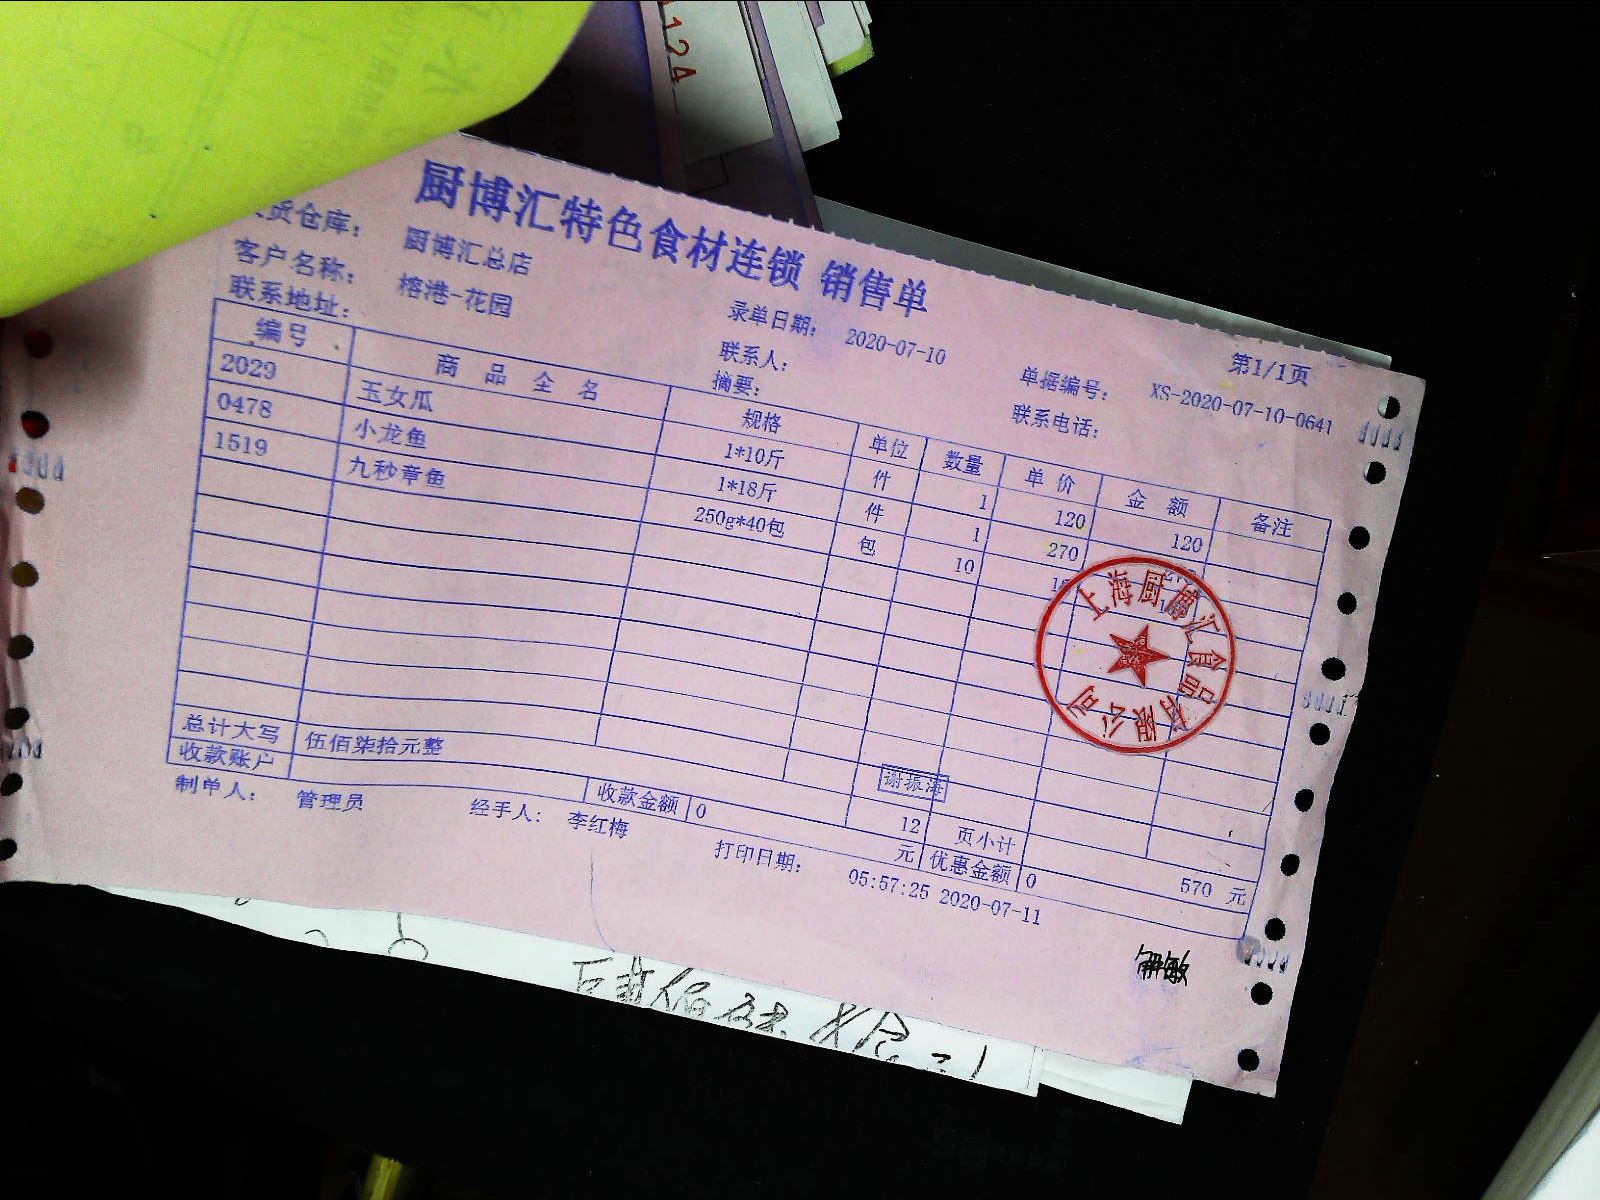 124
厨博汇特色食材连锁 销售单
货仓库： 厨博汇总店 录单日期： 2020-07-10 第1/1页
客户名称： 榕港-花园 联系人： 单据编号： XS-2020-07-10-0641
联系地址： 摘要： 联系电话：
编号 商品全名 规格 单位 数量 单价 金额 备注
2029 玉女瓜 1*10斤 件 1 120 120
0478 小龙鱼 1*18斤 件 1 270
1519 九秒章鱼 250g*40包 包 10
上海厨博汇食品有限公司
谢振海
总计大写 伍佰柒拾元整 12 页小计 570 元
收款账户 收款金额 0 元 优惠金额 0
制单人： 管理员 经手人： 李红梅 打印日期： 05:57:25 2020-07-11